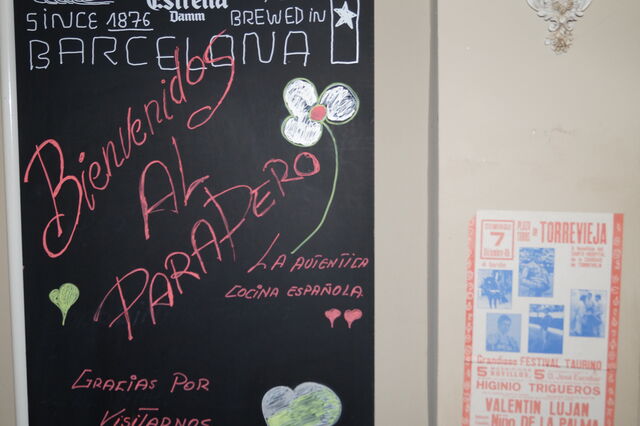 Estrella
Damm
SINCE 1876
BREWED IN
BARCELONA
Bienvenidos
AL
PARADERO
LA AUTENTICA
COCINA ESPAÑOLA.
GRACIAS POR
VISITARNOS
PLAZA
TOROS
DE TORREVIEJA
DOMINGO
7
Grandioso FESTIVAL TAURINO
5 NOVILLOS 5
HIGINIO TRIGUEROS
VALENTIN LUJAN
Niño DE LA PALMA